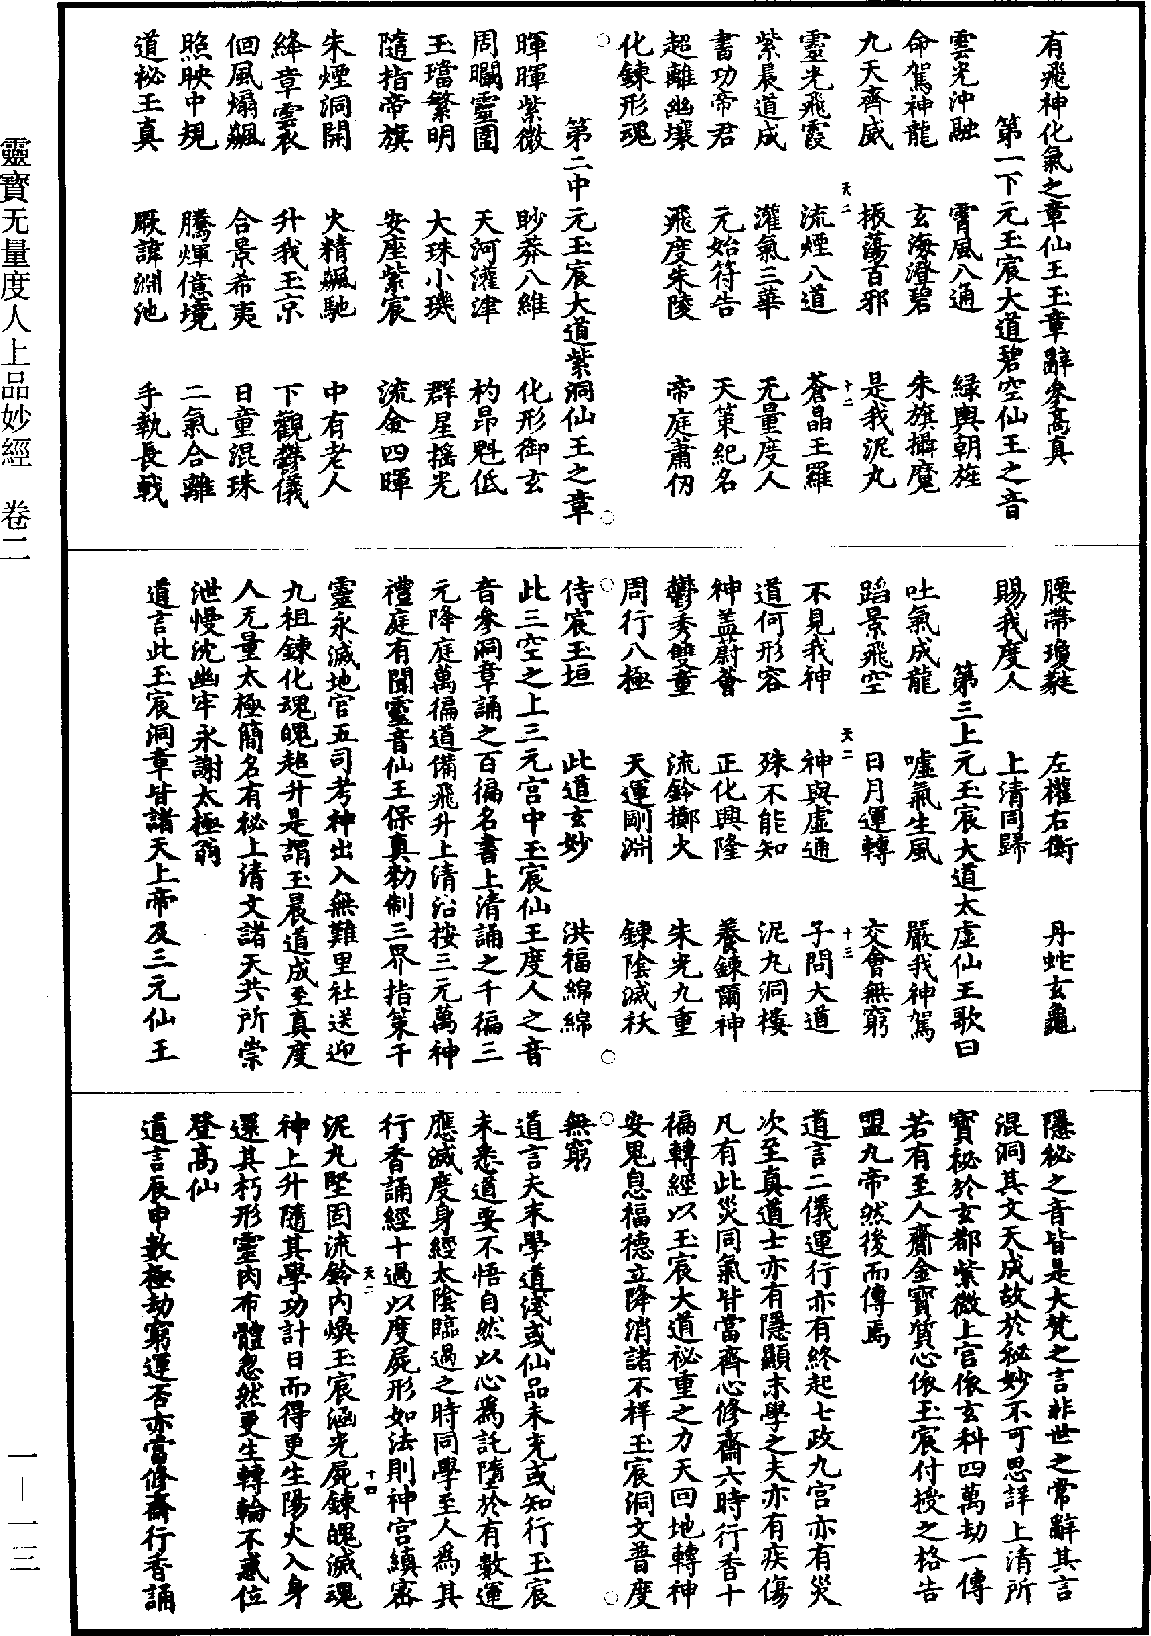 有飛神化氣之章仙王玉章辭參高真
第一下元玉宸大道碧空仙王之音
雲光沖融 霄風八通 綠輿朝旌
命駕神龍 玄海澄碧 朱旗攝魔
九天齊威 振蕩百邪 是我泥丸
天二 十二
靈光飛霞 流煙八道 蒼晶玉羅
紫晨道成 灌氣三華 无量度人
書功帝君 元始符告 天策紀名
超離幽壤 飛度朱陵 帝庭蕭仞
化鍊形魂
第二中元玉宸大道紫洞仙王之章
暉暉紫微 眇莽八維 化形御玄
周矙靈圍 天河灌津 杓昂魁低
玉璫繁明 大珠小璣 群星搖光
隨指帝旗 安座紫宸 流金四暉
朱煙洞開 火精飊馳 中有老人
絳章雲衣 升我玉京 下觀兩儀
佪風煽飊 合景希夷 日童混珠
照映中規 騰煇億境 二氣合離
道祕玉真 厥諱淵池 手執長戟
腰帶瓊蕤 左權右衡 丹虵玄龜
賜我度人 上清同歸
第三上元玉宸大道太虛仙王歌曰
吐氣成龍 噓氣生風 嚴我神駕
蹈景飛空 日月運轉 交會無窮
天二 十三
不見我神 神與虛通 子問大道
道何形容 殊不能知 泥丸洞樓
神蓋蔚薈 正化興隆 養鍊爾神
鬱秀雙童 流鈴擲火 朱光九重
周行八極 天運剛淵 鍊陰滅祅
侍宸玉垣 此道玄妙 洪福綿綿
此三空之上三元宮中玉宸仙王度人之音
音參洞章誦之百徧名書上清誦之千徧三
元降庭萬徧道備飛升上清沿按三元萬神
禮庭有聞靈音仙王保真勑制三界指策千
靈永滅地官五司考神出入無難里社送迎
九祖鍊化魂魄超升是謂玉晨道成至真度
人无量太極簡名有祕上清文諸天共所崇
泄慢沈幽牢永謝太極翁
道言此玉宸洞章皆諸天上帝及三元仙王
隱秘之音皆是大梵之言非世之常辭其言
混洞其文天成故於秘妙不可思詳上清所
寶秘於玄都紫微上宮依玄科四萬劫一傳
若有至人齎金寶質心依玉宸付授之格告
盟九帝然後而傳焉
道言二儀運行亦有終起七政九宮亦有災
次至真道士亦有隱顯末學之夫亦有疾傷
凡有此災同氣皆當齊心修齋六時行香十
徧轉經以玉宸大道祕重之力天回地轉神
安鬼息福德立降消諸不祥玉宸洞文普度
無窮
道言夫末學道淺或仙品未充或知行玉宸
未悉道要不悟自然以心爲託墮於有數運
應滅度身經太陰臨過之時同學至人爲其
行香誦經十過以度屍形如法則神宮縝密
天二 十四
泥丸堅固流鈴內煥玉宸涵光屍鍊魄滅魂
神上升隨其學功計日而得更生陽火入身
還其朽形靈肉布體忽然更生轉輪不惑位
登高仙
道言辰申數極劫窮運否亦當修齋行香誦
靈寶无量度人上品妙經 卷二
一—一三